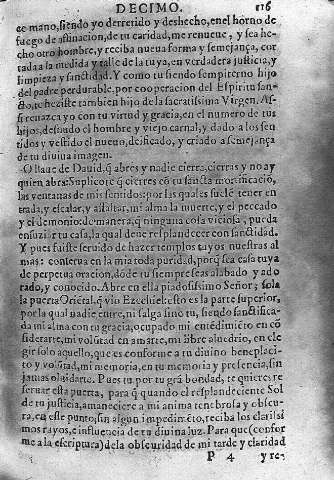 DECIMO. 116
ce mano, siendo yo derretido y deshecho, en el horno de
fuego de afinacion, de tu caridad, me renueue, y sea he-
cho otro hombre, y reciba nueua forma y semejança, cor
tada a la medida y talle de la tuya, en verdadera justicia, y
limpieza y sanctidad. Y como tu siendo sempiterno hijo
del padre perdurable, por cooperacion del Espiritu san-
cto, te heziste tambien hijo de la sacratissima Virgen. As-
si renazca yo con tu virtud y gracia, en el numero de tus
hijos, desnudo el hombre y viejo carnal, y dado a los sen
tidos y vestido el nueuo, deificado, y criado a semejança
de tu diuina imagen.
O llaue de Dauid, q̃ abres y nadie cierra, cierras y no ay
quien abra: Suplicote q̃ cierres cõ tu sancta mortificaciõ,
las ventanas de mis sentidos: por las quales suele tener en
trada, y escalar, y assaltar, mi alma la muerte, y el peccado
y el demonio: de manera, q̃ ninguna cosa viciosa, pueda
ensuziar tu casa, la qual deue resplandecer con sanctidad.
Y pues fuiste seruido de hazer templos tuyos nuestras al
mas: conserua en la mia toda puridad, porq̃ sea casa tuya
de perpetua oracion, dõde tu siempre seas alabado y ado
rado, y conocido. Abre en ella piadosissimo Señor, sola
la puerta Oriẽtal, q̃ vio Ezechiel: esto es la parte superior,
por la qual nadie entre, ni salga sino tu, siendo sanctifica-
da mi alma con tu gracia, ocupado mi entẽdimiẽto en cõ
siderarte, mi volũtad en amarte, mi libre aluedrio, en ele
gir solo aquello, que es conforme a tu diuino beneplaci-
to y volũtad, mi memoria, en tu memoria y presencia, sin
jamas oluidarte. Pues tu por tu grã bondad, te quieres re
seruar esta puerta, para q̃ quando el resplandeciente Sol
de tu justicia, amaneciere a mi anima tenebrosa y obscu-
ra, en esse punto, sin algun impedimẽto, reciba los clarissi
mos rayos, e influencia de tu diuina luz. Para que (confor
me a la escriptura) de la obscuridad de mi tarde y claridad
P 4 y re-